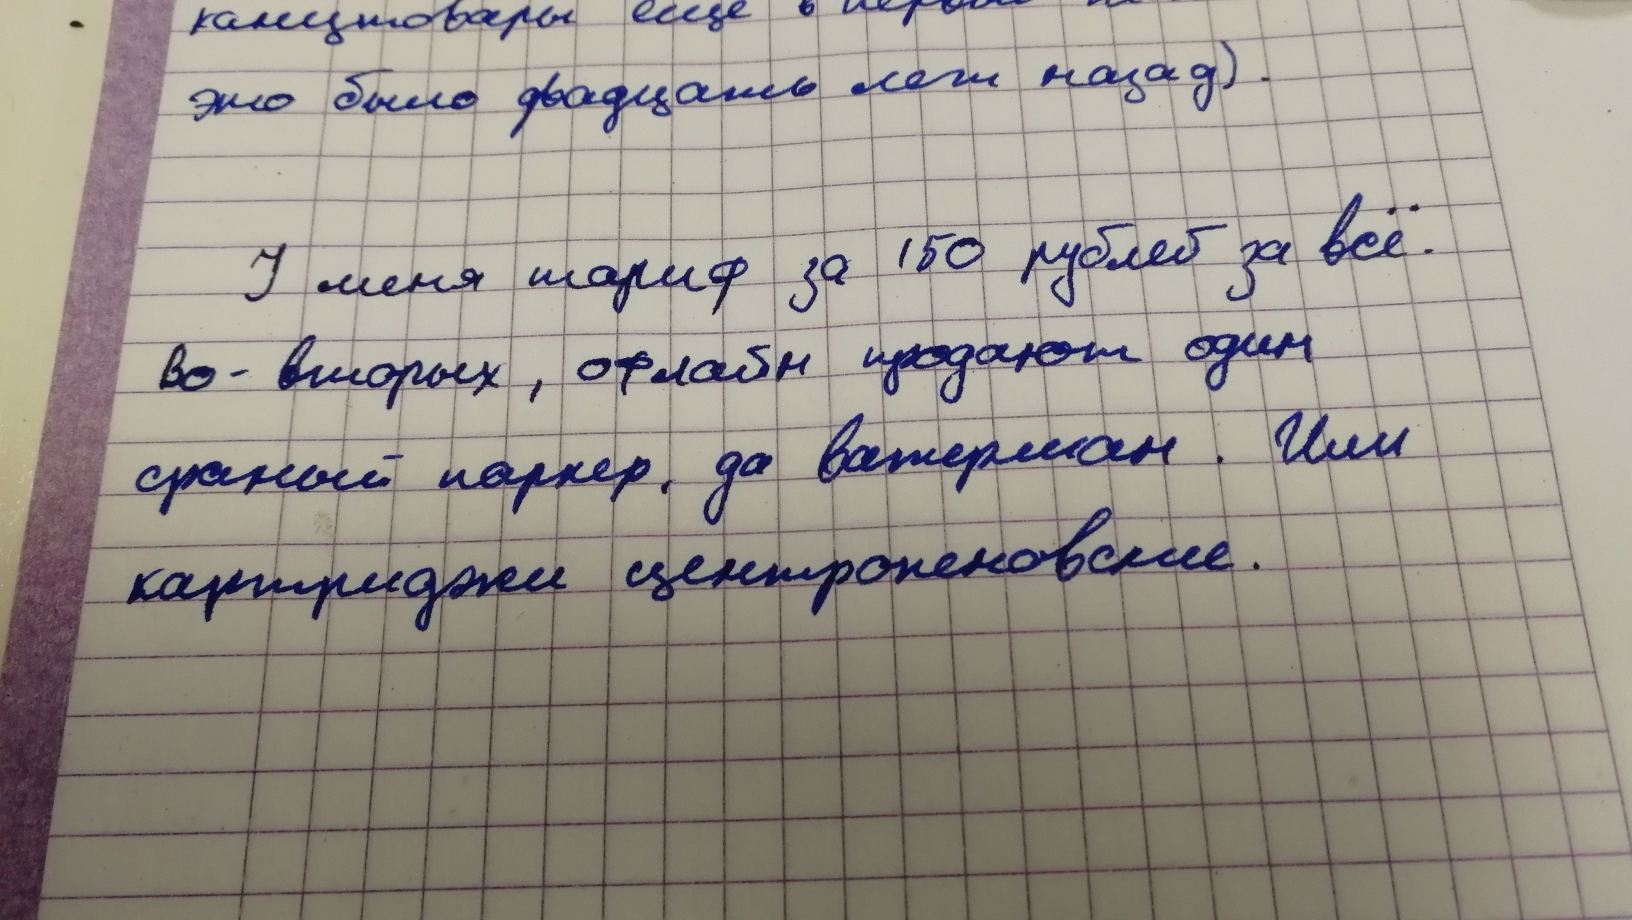 канцтовары еще в первый
это было двадцать лет назад).
У меня тариф за 150 рублей за всё.
Во-вторых, офлайн продают один
сраный паркер, да ватерман. Или
картриджи центропеновские.